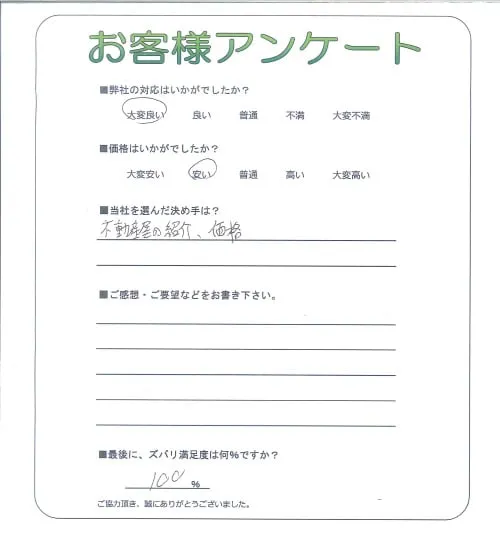 お客様アンケート
■弊社の対応はいかがでしたか？
大変良い 良い 普通 不満 大変不満
■価格はいかがでしたか？
大変安い 安い 普通 高い 大変高い
■当社を選んだ決め手は？
不動産屋の紹介、価格
■ご感想・ご要望などをお書き下さい。
■最後に、ズバリ満足度は何%ですか？
100 %
ご協力頂き、誠にありがとうございました。